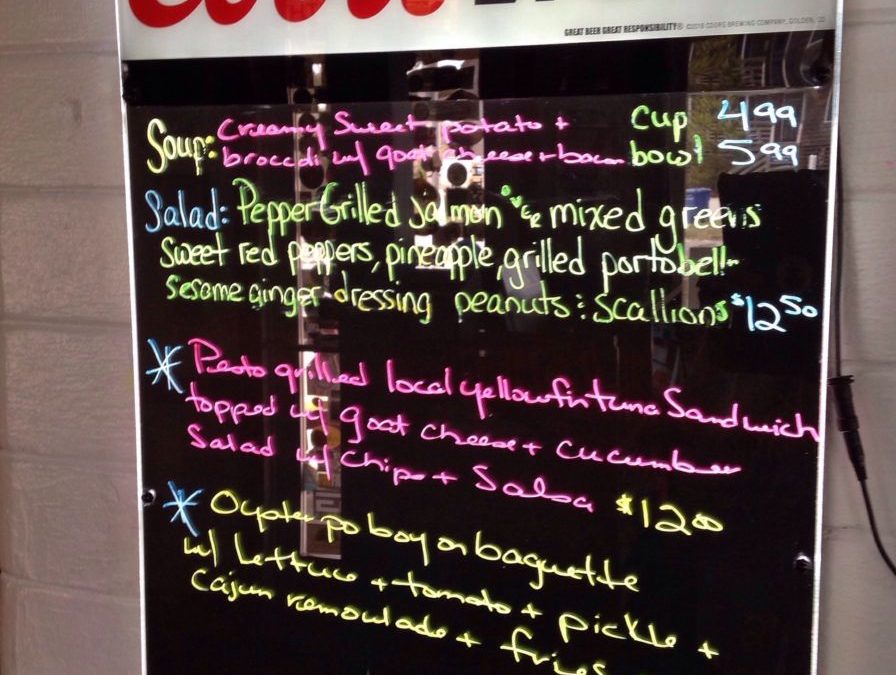 Coors
GREAT BEER GREAT RESPONSIBILITY® ©2010 COORS BREWING COMPANY, GOLDEN, CO
Soup: Creamy Sweet potato + Cup 4 99
broccoli w/ goat cheese + bacon bowl 5 99
Salad: Pepper Grilled Salmon over mixed greens
Sweet red peppers, pineapple, grilled portobello
Sesame ginger dressing peanuts & scallions $12 50
* Pesto grilled local yellowfin tuna Sandwich
topped w/ goat cheese + cucumber
Salad w/ chips + Salsa $12 00
* Oyster po boy on baguette
w/ lettuce + tomato + pickle +
cajun remoulade + fries